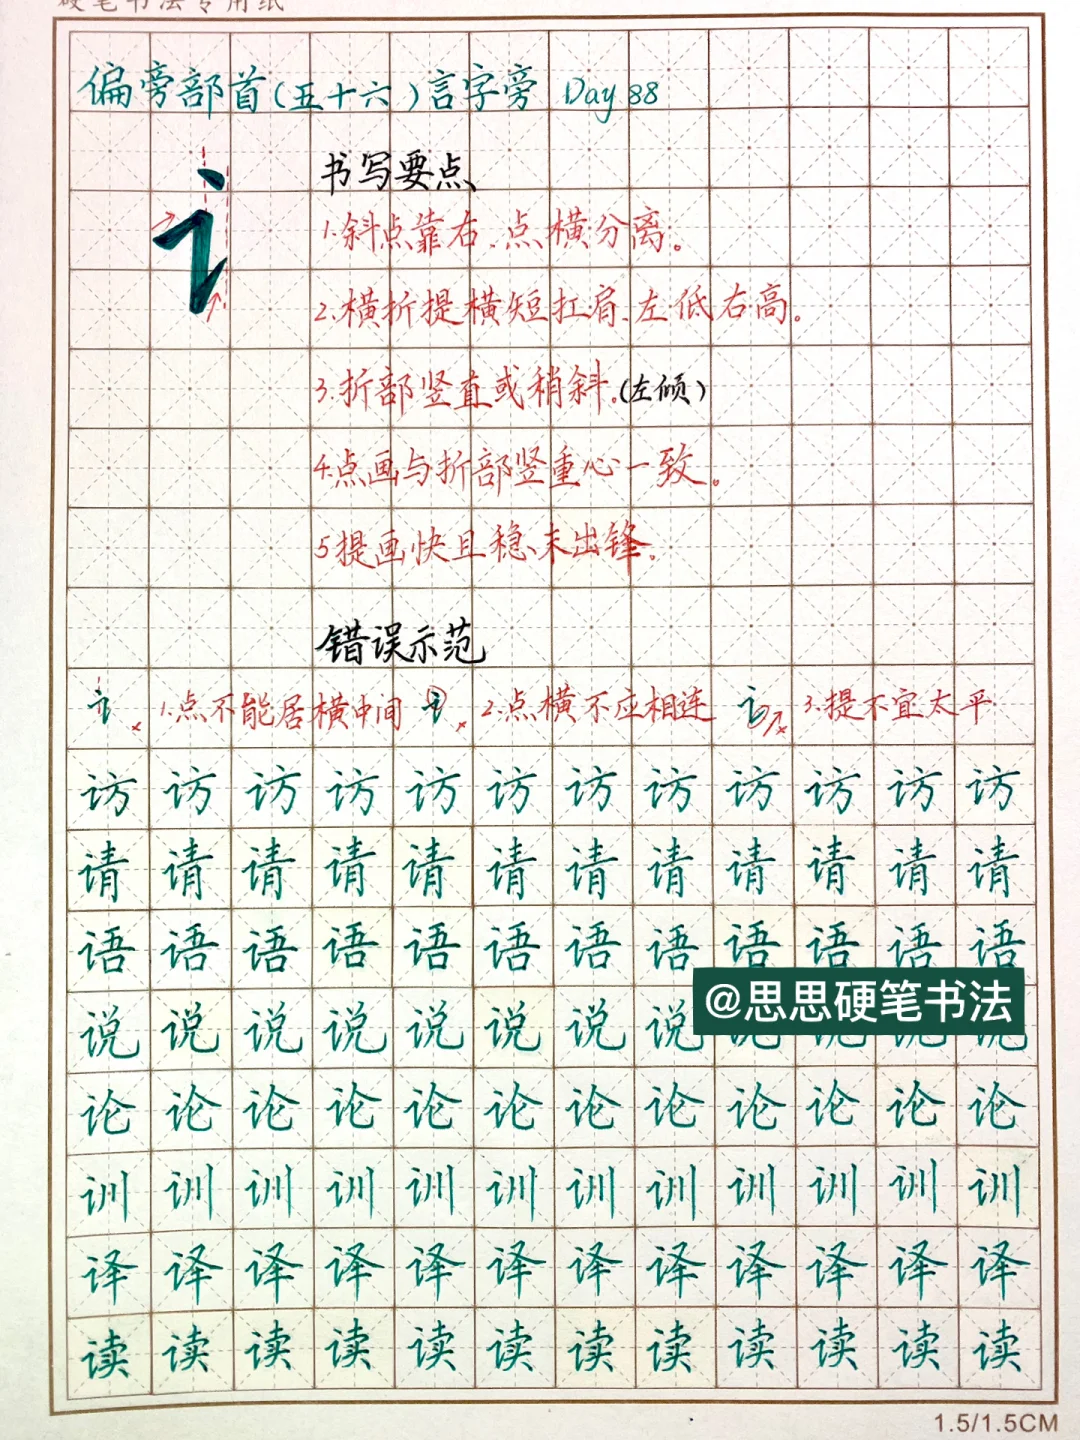 硬笔书法专用纸
偏旁部首(五十六)言字旁 Day 88
讠
书写要点
1.斜点靠右、点横分离。
2.横折提横短扛肩、左低右高。
3.折部竖直或稍斜.(左倾)
4.点画与折部竖重心一致。
5提画快且稳、末出锋。
错误示范
讠 × 1.点不能居横中间 讠 × 2.点横不应相连 讠 × 3.提不宜太平.
访访访访访访访访访访访访
请请请请请请请请请请请请
语语语语语语语语语语语语
@思思硬笔书法
说说说说说说说说说说说说
论论论论论论论论论论论论
训训训训训训训训训训训训
译译译译译译译译译译译译
读读读读读读读读读读读读
1.5/1.5CM